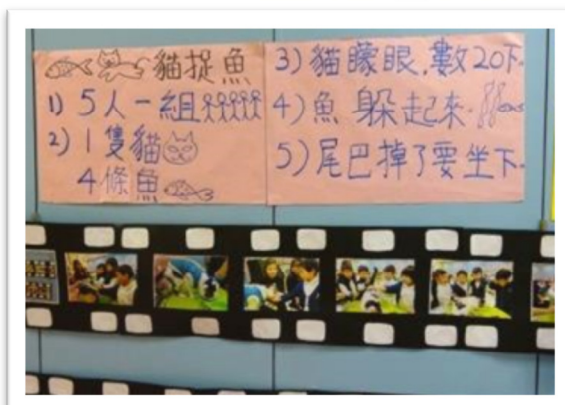 貓捉魚
1) 5人一組
2) 1隻貓
4條魚
3) 貓矇眼,數20下.
4) 魚躲起來.
5) 尾巴掉了要坐下.